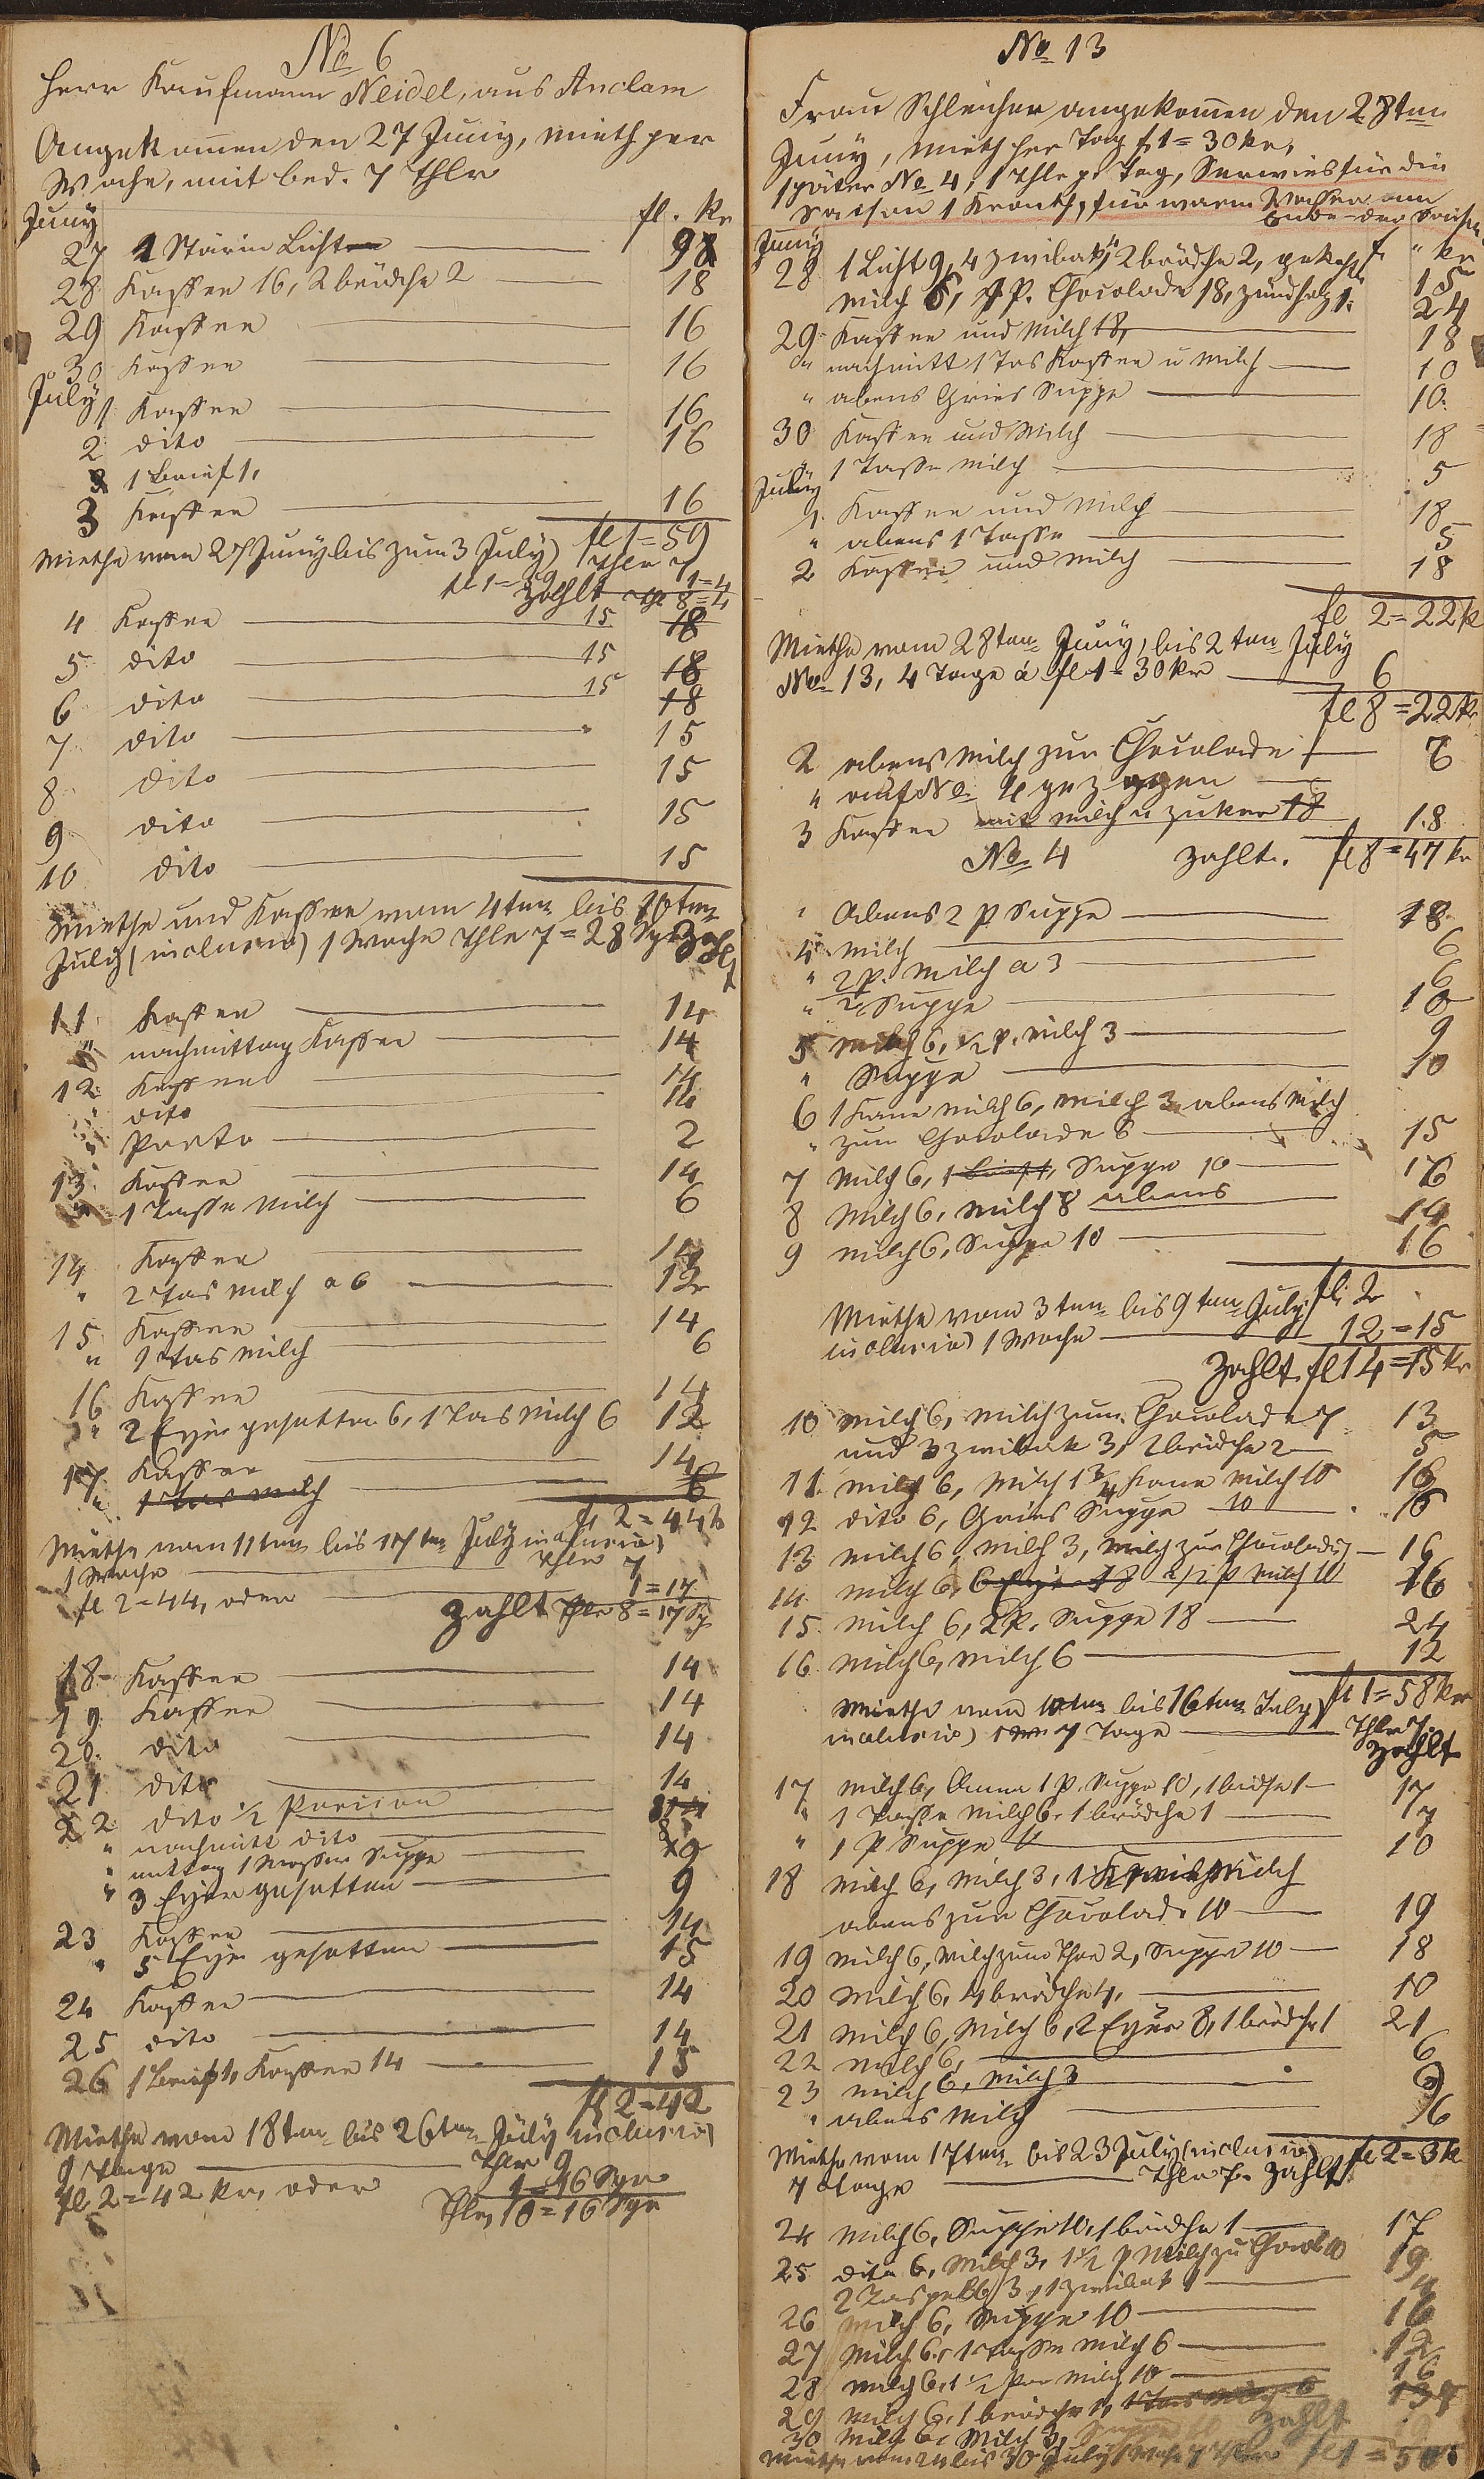 No 6
Herr Kaufmann Neidel, aus Anclam
Angekomen den 27 Juny, mieth per
Woche, mit bed. 7 Thlr
Juny fl. kr
27 1 Stärin Licht 9
28 Kaffee 16, 2 brödche 2 18
29 Kaffee 16
30 Kaffee 16
July
1 Kaffee 16
2 dito 16
1 Brief 1,
3 Kaffee 16
Miethe vom 27 Juny bis zum 3 July) fl 1=59
Thlr 7
fl 1=59 1=4
zahlt 8=4
4 Kaffee 15 18
5 dito 15 18
6 dito 15 18
7 dito 15
8 dito 15
9 dito 15
10 dito 15
Miethe und Kaffee vom 4ten bis 10ten
July (inclusiv) 1 Woche Thlr 7=28 Sgr Zahlt
11 Kaffee 14
" nachmittag Kaffee 14
12 Kaffee 14
" dito 14
" Porto 2
13 Kaffee 14
" 1 Tasse Milch 6
14 Kaffee 14
" 2 Tas Milch a 6 12
15 Kaffee 14
" 1 Tas Milch 6
16 Kaffee 14
" 2 Eyer gesotten 6, 1 Tas Milch 6 12
17 Kaffee 14
" 1 Tas Milch 6
fl 2=44 k
Miethe vom 11ten bis 17ten July inclusiv)
1 Woche Thlr 7
fl 2=44, oder 1=17
zahlt Thlr 8=17 Sg
18 Kaffee 14
19 Kaffee 14
20 dito 14
21 dito 14
22 dito 1/2 Porcion 8
" nachmitt dito 8
" mittag 1 Wasser Suppe 9
" 3 Eyer gesotten 9
23 Kaffee 14
" 5 Eyer gesotten 15
24 Kaffee 14
25 dito 14
26 1 Brief 1, Kaffee 14 15
fl 2=42
Miethe vom 18ten bis 26ten July inclusiv)
9 Tage Thlr 9
fl 2=42 kr, oder 1=16 Sgr
Thlr 10=16 Sgr
No 13
Frau Schleicher angekomen den 28ten
Juny, mieth per Tag f 1=30 kr,
später No 4, 1 Thlr p. Tag, Servies für die
Saison 1 Kronth, für warm Wasser am
Ende der Saison
Juny f " kr
28 1 Licht 9, 4 zwibak, 2 brödche 2, gekocht 15
Milch 5, P. Chocolade 18, zündholz 1. 24
29 Kaffee und Milch 18, 18
" nachmitt 1 Tas Kaffee u Milch 10
" abens Gries Suppe 10.
30 Kaffee und Milch 18
" 1 Tasse Milch 5
July
1 Kaffee und Milch 18
" abens 1 Tasse 5
2 Kaffee und Milch 18
fl 2=22 k
Miethe vom 28ten Juny, bis 2ten July
No 13, 4 Tage á fl 1=30 kr 6
fl 8=22 k
2 abens Milch zur Chocolade 7
" auf No 4 gezoggen
3 Kaffee mit Milch u zuker 18 18
No 4 zahlt. fl 8=47 kr
" Abens 2 P Suppe 18
4 Milch 6
" 2 p. Milch a 3 6
" Suppe 10
5 Milch 6, 1/2 p. Milch 3 9
" Suppe 10
6 1 Kane Milch 6, Milch 3 abens Milch
" zur Chocolade 6 15
7 Milch 6, 1 Brief 1, Suppe 10 16
8 Milch 6, Milch 8 abens 14
9 Milch 6, Suppe 10 16
fl. 2
Miethe vom 3ten bis 9ten July
inclusiv) 1 Woche 12=15
Zahlt fl 14=15 kr
10 Milch 6, Milch zum Chocolade 7 13
und 3 zwibak 3, 2 brödche 2 5
11 Milch 6, Milch 1 3/4 Kane Milch 10 16
12 dito 6, Gries Suppe 10 16
13 Milch 6, Milch 3, Milch zur Chocolade 7 16
14 Milch 6, 6 Eyer 18 1/2 P Milch 10 16
15 Milch 6, 2 P. Suppe 18 24
16 Milch 6, Milch 6 12
fl 1=58 kr
Miethe vom 10ten bis 16ten July
inclusiv) 7 Tage Thlr 7.
zahlt
17 Milch 6, Anna 1 P. Suppe 10, 1 brödche 1 17
" 1 Tasse Milch 6, 1 brödche 1 7
" 1 P Suppe 10
18 Milch 6, Milch 3, 1 Milch
abens zur Chocolade 10 19
19 Milch 6, Milch zum Thee 2, Suppe 10 18
20 Milch 6, 4 brödche 4, 10
21 Milch 6, Milch 6, 2 Eyer 8, 1 brödche 1 21
22 Milch 6, 6
23 Milch 6, Milch 3 9
" abens Milch 6
fl 2=3 k
Miethe vom 17ten bis 23 July (inclusiv)
7 Tage Thlr 7. Zahlt
24 Milch 6, Suppe 10, 1 brödche 1 17
25 dito 6, Milch 3, 1 1/2 P Milch zu Chocol 10 19
2 Tas 3, 1 zwibak 1 4
26 Milch 6, Suppe 10 16
27 Milch 6, 1 Tasse Milch 6 12
28 Milch 6, 1 1/2 Por Milch 10 16
29 Milch 6, 1 brödche 1, 1 Tas Milch 6
30 Milch 6, Milch 3, zahlt
Miethe vom 24 bis 30 July 1 Woche 7 Thlr